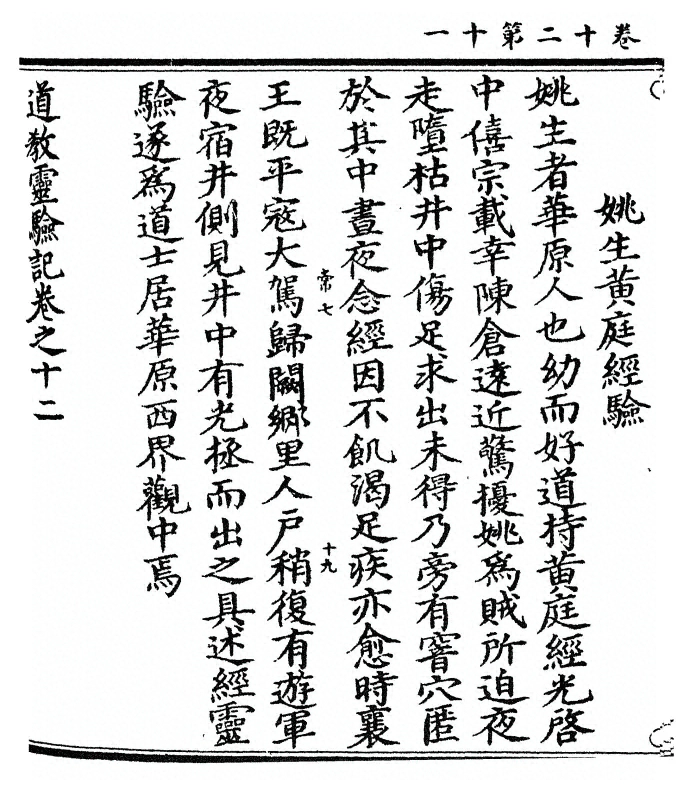 卷十二第十一
姚生黄庭經驗
姚生者華原人也幼而好道持黄庭經光啓
中僖宗載幸陳倉遠近驚擾姚爲賊所迫夜
走墮枯井中傷足求出未得乃旁有窨穴匿
於其中晝夜念經因不飢渴足疾亦愈時襄
常七
十九
王既平寇大駕歸闕鄉里人戶稍復有遊軍
夜宿井側見井中有光拯而出之具述經靈
驗遂爲道士居華原西界觀中焉
道教靈驗記卷之十二